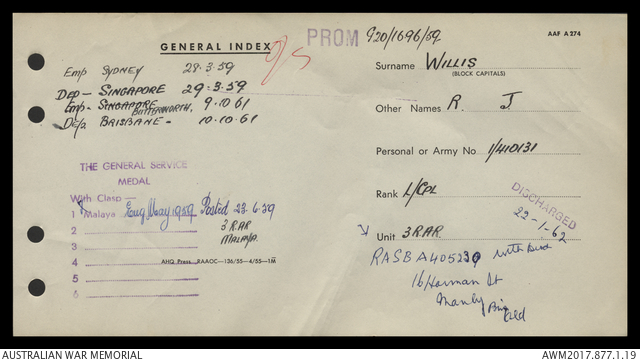 GENERAL INDEX
O/S
PROM
G20/1696/59
AAF A 274
Emp SYDNEY 28.3.59
Dep - SINGAPORE 29.3.59
Emp - SINGAPORE BUTTERWORTH, 9.10.61
De/p BRISBANE - 10.10.61
THE GENERAL SERVICE
MEDAL
With Clasp
1 Malaya Eng May 1959 Posted 23.6.59
2 3 RAR
3 MALAYA.
4
5
6
AHQ Press RAAOC-136/55-4/55-1M
Surname WILLIS
(BLOCK CAPITALS)
Other Names R. J
Personal or Army No 1/410131
Rank L/CPL
DISCHARGED
22-1-62
Unit 3RAR
RASB A405239 with
16 Horman St
Manly
Qld
AUSTRALIAN WAR MEMORIAL
AWM2017.877.1.19